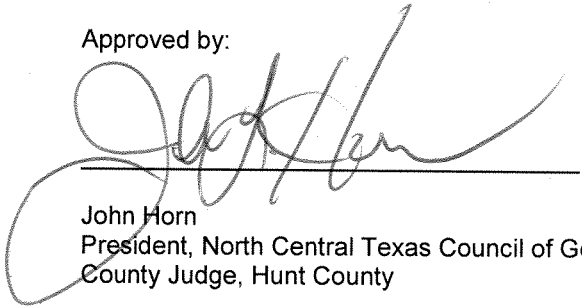 Approved by:
John Horn
John Horn
President, North Central Texas Council of Go
County Judge, Hunt County